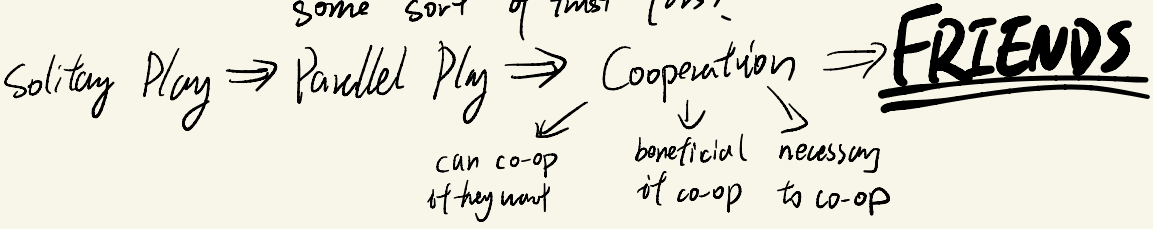 some sort of trust first?
Solitay Play ⇒ Parallel Play ⇒ Cooperation ⇒ FRIENDS
can co-op
if they want
beneficial
if co-op
necessary
to co-op